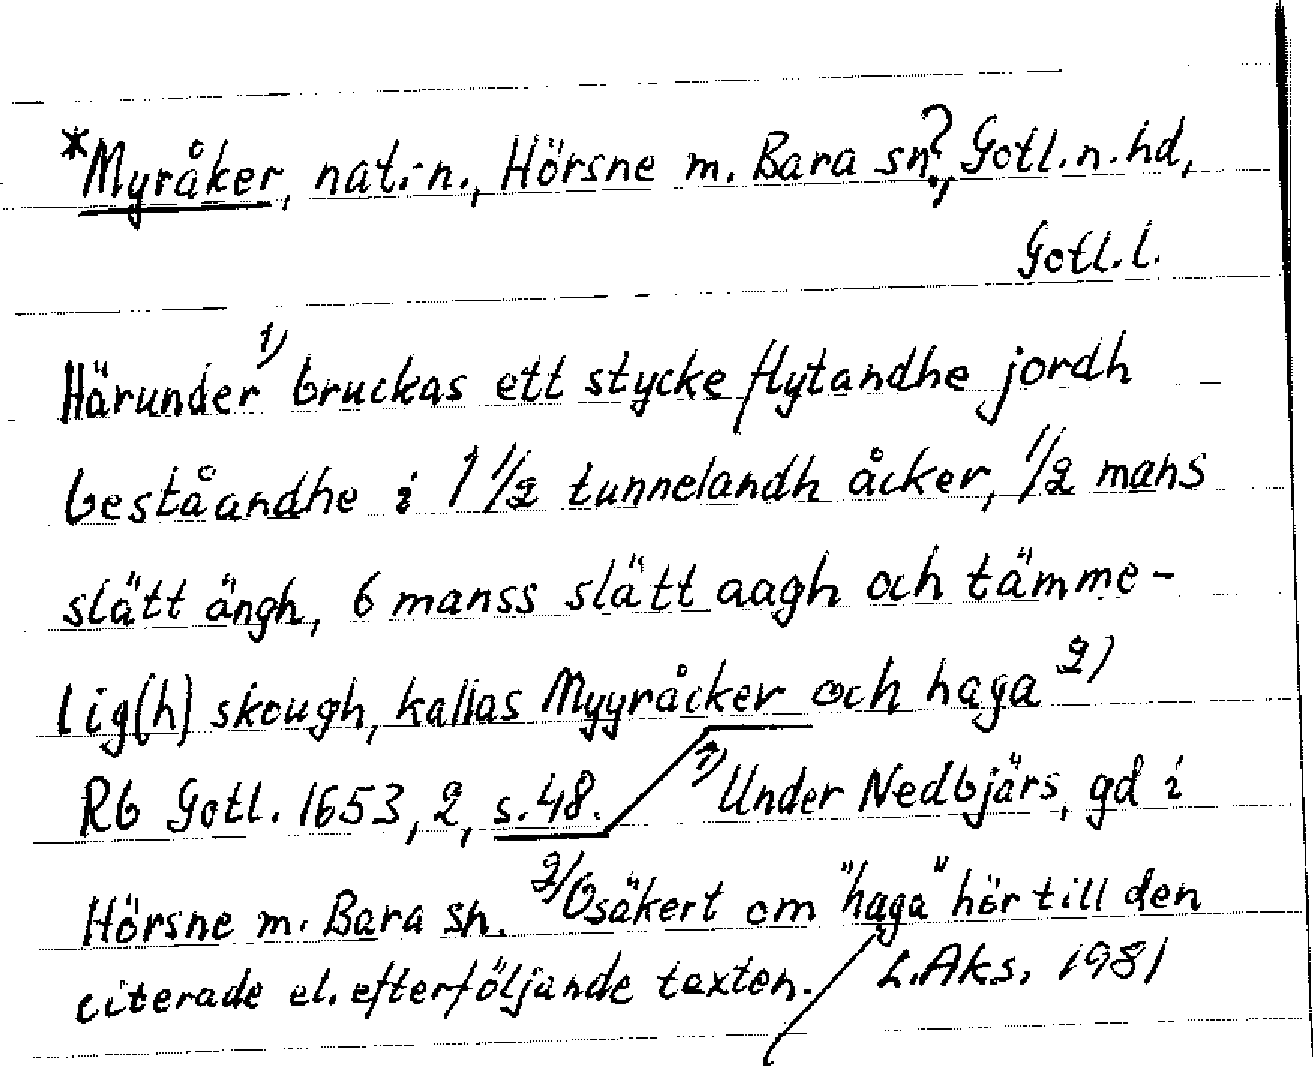 *Myråker, nat.-n., Hörsne m. Bara sn?, Gotl. n. hd,
Gotl. l.
Härunder 1) bruckas ett stycke flytandhe jordh
beståandhe i 1 1/2 tunnelandh åcker, 1/2 mans
slätt ängh, 6 manss slätt aagh och tämme-
lig(h) skough, kallas Myyråcker och haga 2)
Rb Gotl. 1653, 2, s. 48. 1) Under Nedbjärs, gd i
Hörsne m. Bara sn. 2) Osäkert om "haga" hör till den
citerade el. efterföljande texten. L. Aks. 1981